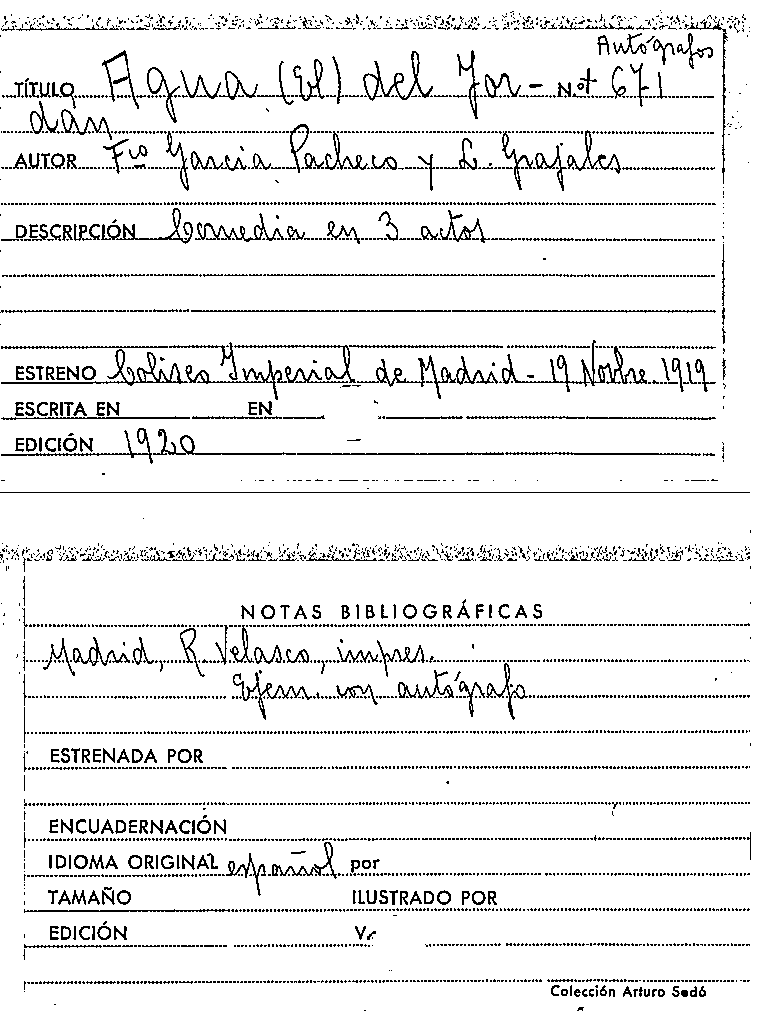 Autógrafos
TÍTULO Agua (El) del Jor- N.ot 671
dán
AUTOR Fco García Pacheco y L. Grajales
DESCRIPCIÓN Comedia en 3 actos
ESTRENO Coliseo Imperial de Madrid - 19 Novbre. 1919
ESCRITA EN EN
EDICIÓN 1920
NOTAS BIBLIOGRÁFICAS
Madrid, R. Velasco, impres.
Ejem. con autógrafo
ESTRENADA POR
ENCUADERNACIÓN
IDIOMA ORIGINAL español por
TAMAÑO ILUSTRADO POR
EDICIÓN V.
Colección Arturo Sedó